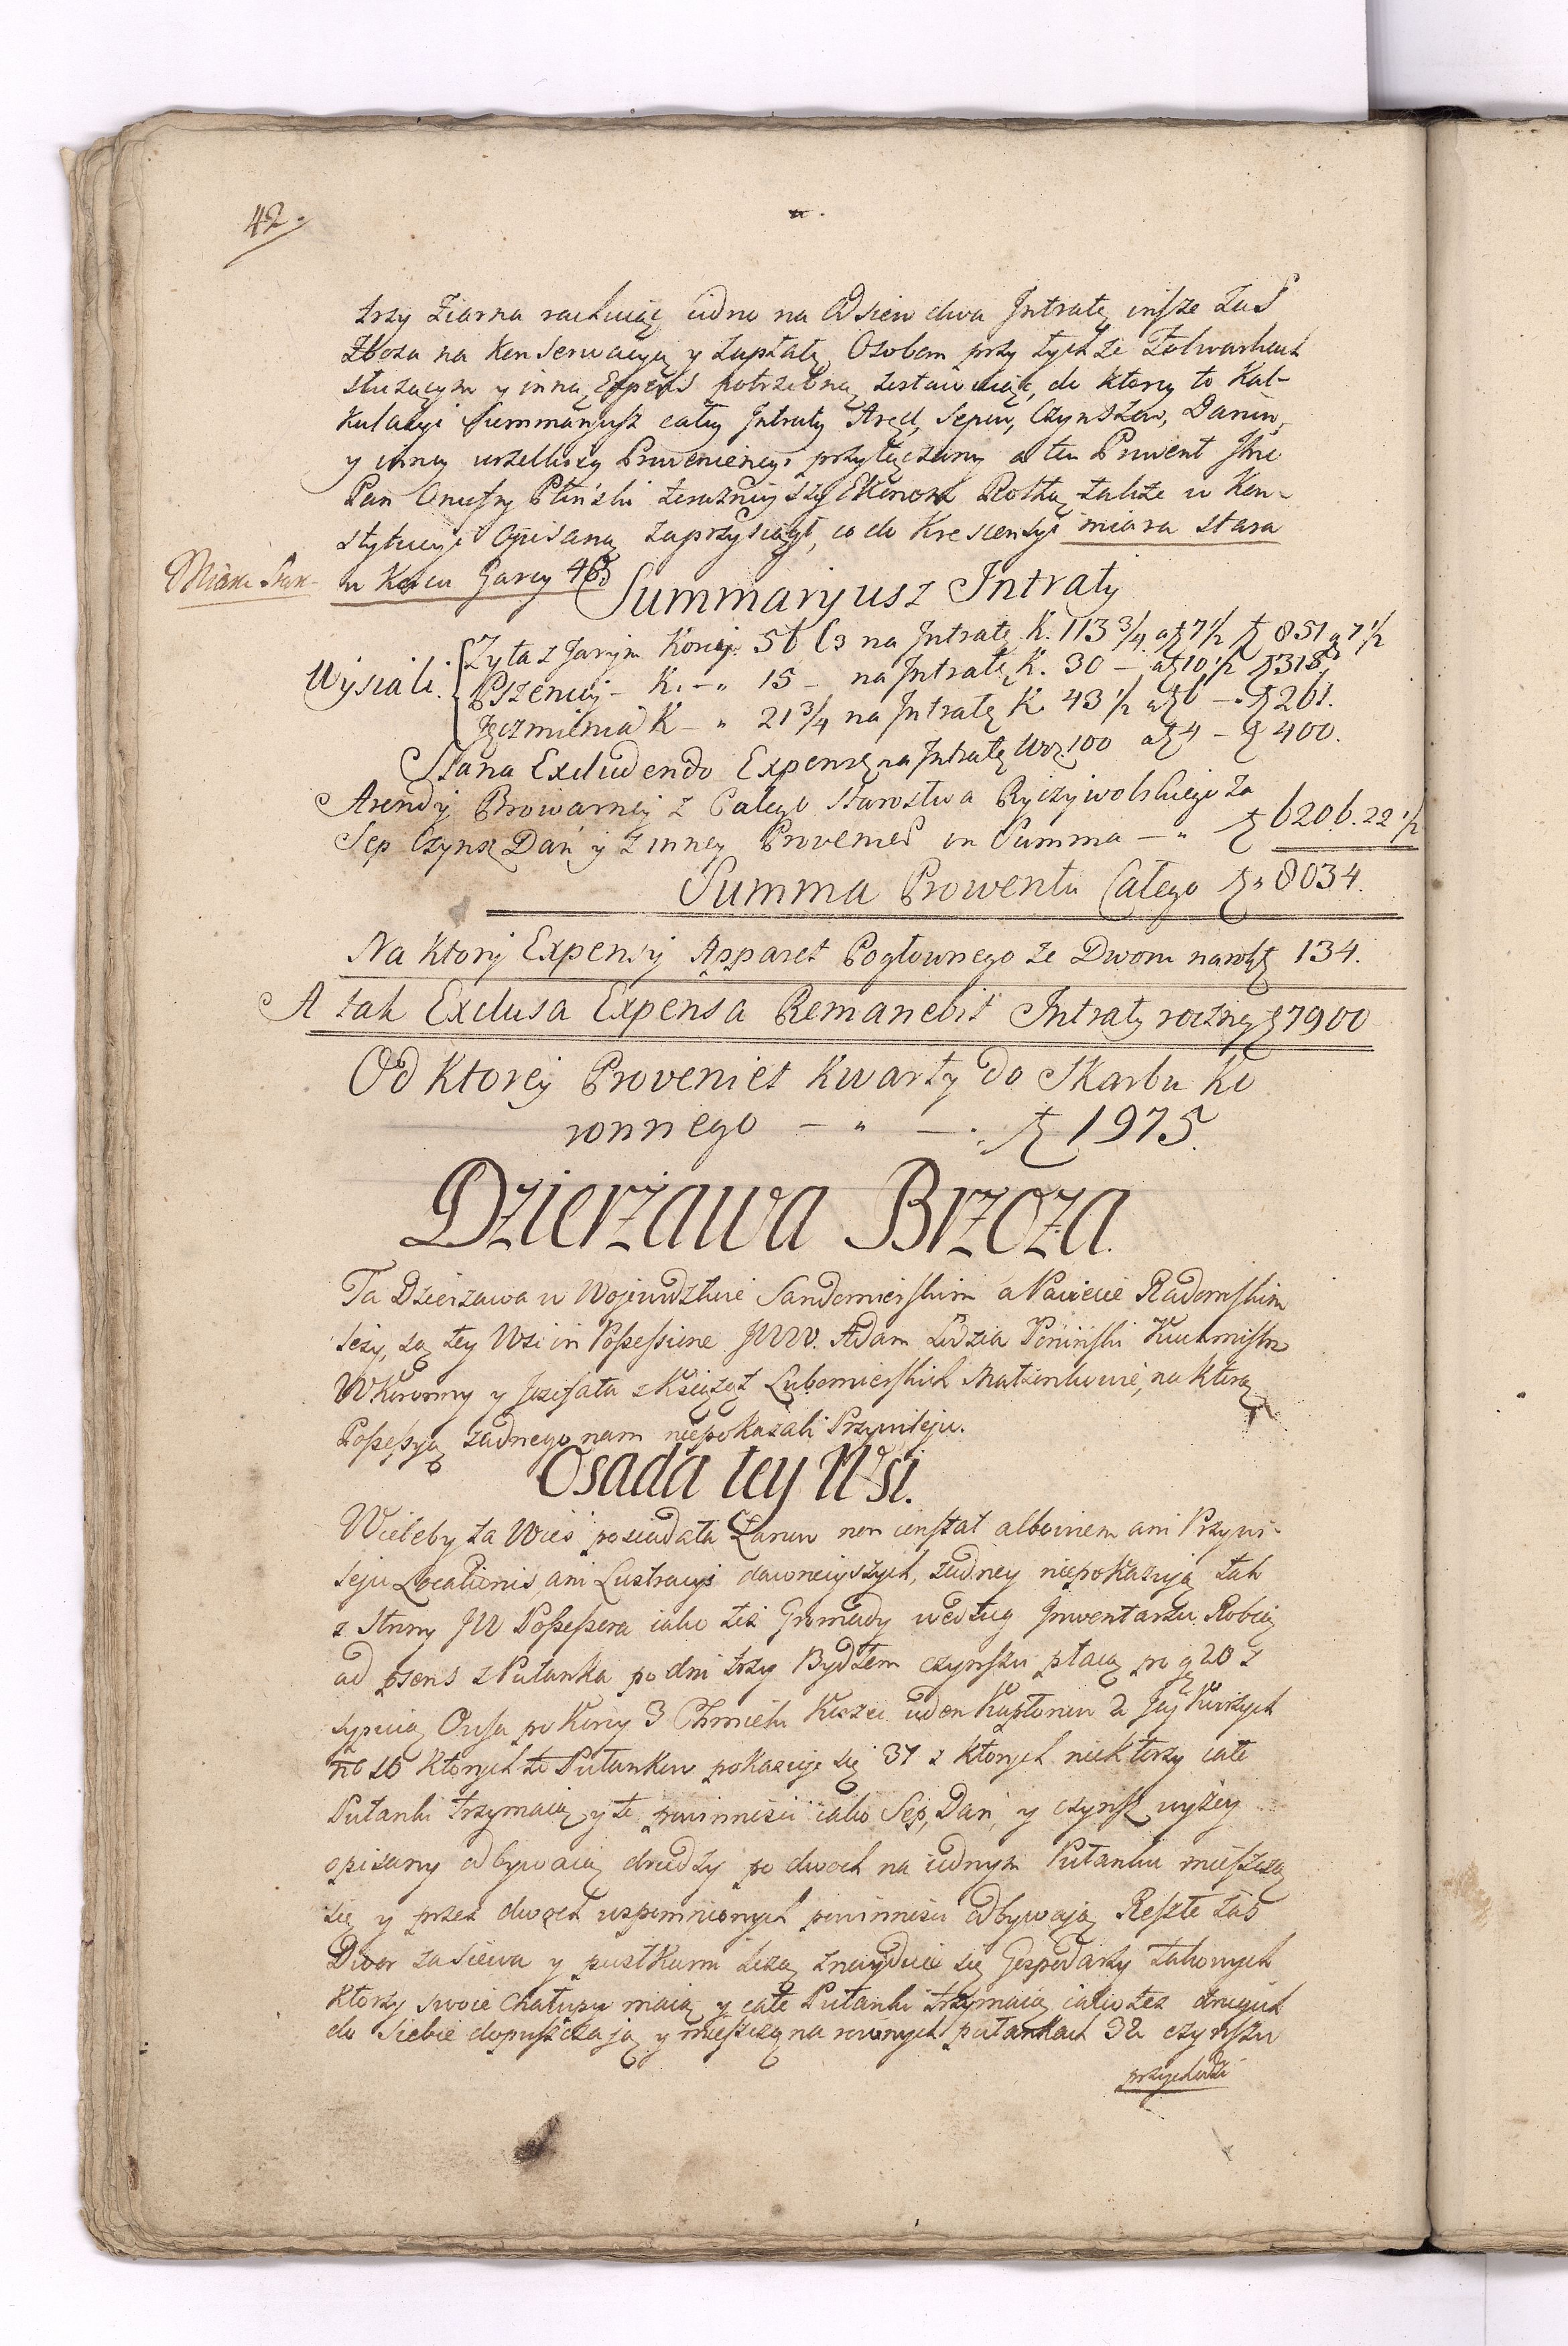 42.
trzy Ziarna rachuiąc iedno na Odsiew dwa Jntratę insze zaś
Zboża na Konserwacyą y zapłatę Osobom przy tychże Folwarkach
słuzącym y inną Expens potrzebną zostawuiąc, do ktorey to Kal-
kulacyi Summaryusz całey Jntraty Aręd, Sepow, Czynszow, Danin,
y inney wszelkiey Proweniencyi przyłączamy a ten Prowent Jmć
Pan Onufry Pliński teraznieyszy Ekonom Rottą także w Kon-
stytucyi Opisaną zaprzysiągł, co do Krescensyi miara stara
w Korcu Garcy 46
Miara Star-
Summaryusz Intraty
Wysiali.
Zyta z Jarym Korcy 56 na Jntratę K. 113 3/4 a 7 1/2 851 g 7 1/2
Pszenicy - K. - " 15 - na Jntratę K. 30 - a 10 1/2 315
Jęczmienia K - " 21 3/4 na Jntratę K. 43 1/2 a 6 - 261.
Siana Excludendo Expensę na Jntratę Woz. 100 a 4 - 400.
Arendy Browarney z Całego Starostwa Ryczywolskiego za
Sep Czynsz Dań y z inney Provenień in Summa - " 6206. 22 1/2
Summa Prowentu Całego " 8034.
Na ktory Expensy Apparet Pogłownego ze Dworu na rok 134.
A tak Exclusa Expensa Remanebit Intraty roczney 7900
Od Ktorey Proveniet Kwarty do Skarbu Ko
ronnego - " - . 1975.
Dzierżawa Brzoza.
Ta Dzierzawa w Wojewodztwie Sandomierskim a Powiecie Radomskim
leży, są tey Wsi in Possessione JWW. Adam Łodzia Poniński Kuchmistrz
W Koronny y Jozefata z Książąt Lubomierskich Małżonkowie, na ktorą
Possessyą żadnego nam niepokazali Przywileju.
Osada tey Wsi.
Wieleby ta Wieś posiadała Łanow non constat albowiem ani Przywi-
leju Locationis, ani Lustracyi dawnieyszych, żadney niepokazują tak
z Strony JW Possessora iako też Gromady według Jnwentarza Robią
ad psens z Półanka po dni trzy Bydłem czynszu płacą po g 20 z
sypuią Owsa po Korcy 3 Chmielu Korzec ieden Kapłonow 2 Jaj Kurzych
no 10 ktorych to Półankow pokazuje się 31 z ktorych niektorzy całe
Półanki trzymaią y te powinności iako Sep, Dań, y czynsz wyżey
opisany odbywaią drudzy po dwoch na iednym Półanku mieszczą
się y przez dwoch wspomnionych powinności odbywają Resztę zaś
Dwor zasiewa y pustkami leżą znayduie się Gospodarzy takowych
ktorzy swoie Chałupy maią y całe Półanki trzymaią iako też drugich
do siebie dopuszczają y mieszczą na rownych półankach 32 czynszu
przychodzi